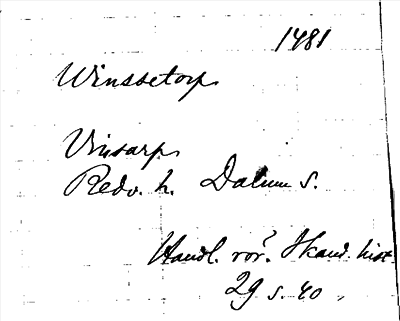 1481
Winssetorp
Vinsarp
Redv. h. Dalum s.
Handl. rör. Skand. hist.
29 s. 40